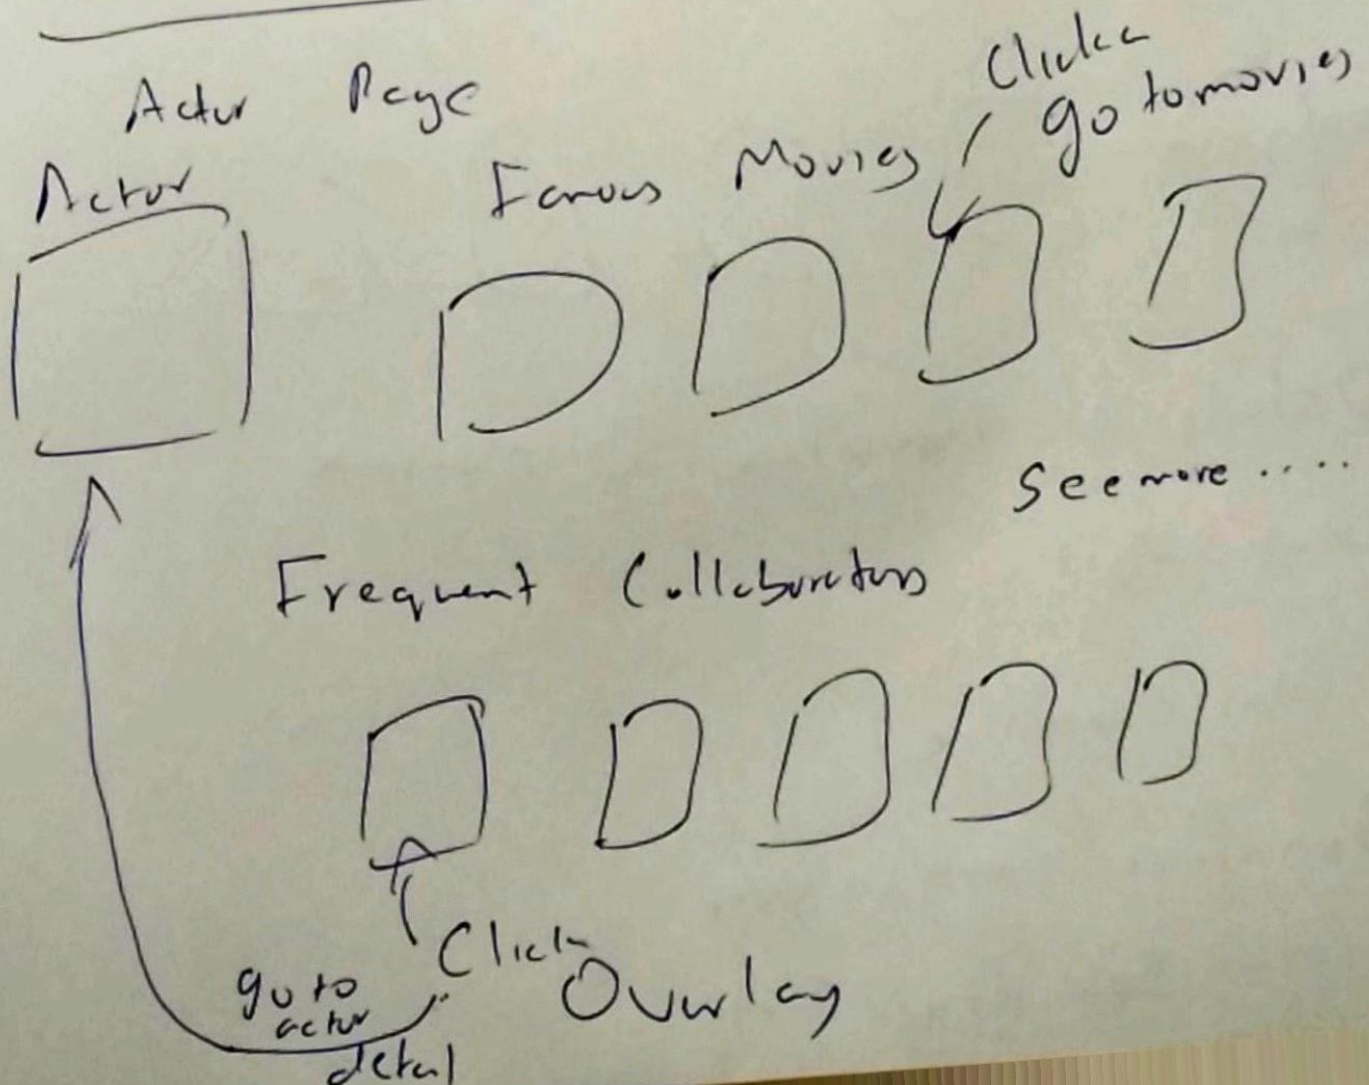 Actor Page
Actor
Famous Movies
Click
go to movies
See more ....
Frequent Collaborators
Click
Overlay
go to
actor
detail